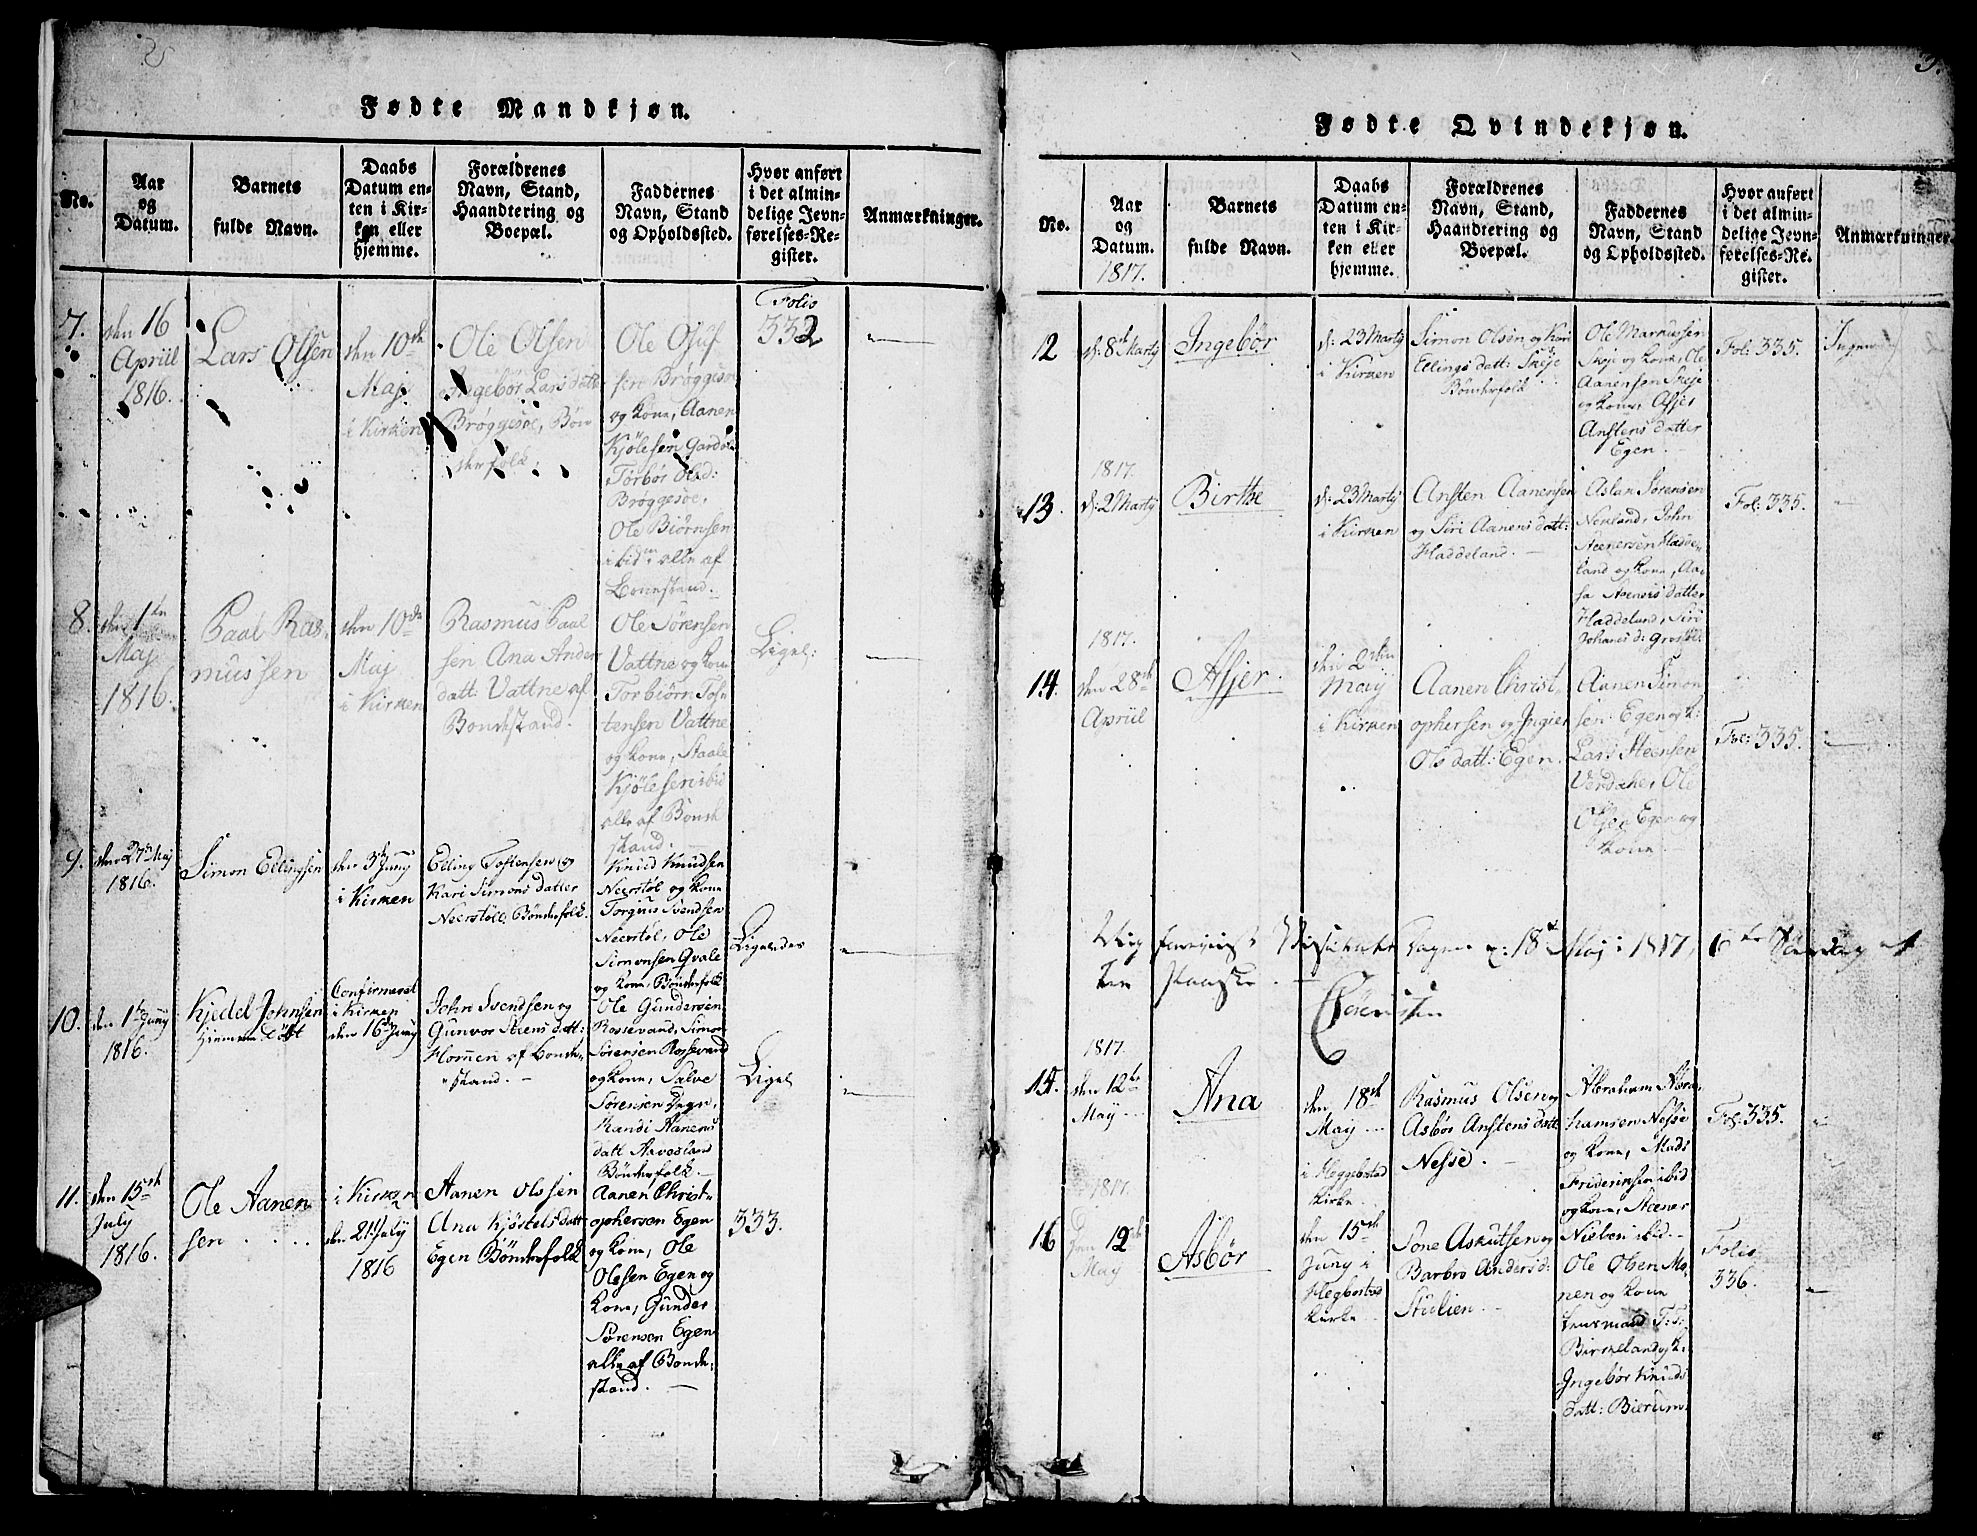 Fødte Mandkjøn.
No.
Aar
og
Datum.
Barnets
fulde Navn.
Daabs
Datum en-
ten i Kir-
ken eller
hjemme.
Forældrenes
Navn, Stand,
Haandtering og
Boepæl.
Faddernes
Navn, Stand
og Opholdssted.
Hvor anført
i det almin-
delige Jevn-
førelses-Re-
gister.
Anmærkninger.
7.
den 16
Apriil
1816.
Lars Olsen
den 10de
Maj
i Kirken
Ole Olsen
Ingebør Larsdatt
Brøggesøe, Bøn
derfolk.
Ole Osuf
sen Brøggesøe
og kone, Aanen
Kjølesen Gardøe
Torbør Olsd:
Brøggesøe,
Ole Biørnsen
ibidm alle af
Bondestand.
Folio
332
8.
den 1te
Maj
1816.
Paal Ras,
mussen
den 10de
Maj
i Kirken
Rasmus Paal
sen Ana Anders
datt: Vattne af
Bondestand.
Ole Sørensen
Vattne og kone
Torbiørn Tos,
tensen Vattne
og kone, Staale
Kjølesen ibid
alle af Bonde
stand.
Ligel:
9.
den 27de Maj
1816.
Simon Ellingsen
den 3de Juny
i Kirken
Elling Tostensen og
Kari Simonsdatter
Neerstøl: Bønderfolk.
Knud Knudsen
Neerstøl og kone
Torgius Svendsen
Neerstøl, Ole
Simonsen Qvale
og kone, Bønderfolk
Ligeledes
10.
den 1te Juny
1816.
Kjedel Johnsen
hjemme døbt
Confirmeret
i Kirken
den 16de Juny
John Svendsen og
Gunvor Steensdatt:
Hommen af Bonde,
stand.
Ole Gundersen
Rossevand, Simon
Sørensen Rossevand
og kone, Salve
Sørensen Degn,
Randi Aanens
datt Aavesland
Bønderfolk.
Ligel
11.
den 15de
July
1816.
Ole Aanen
sen
i Kirken
den 21de July
1816
Aanen Olssen
Ana Kjøstelsdatt
Egen Bønderfolk
Aanen Christ,
ophersen Egen
og kone, Ole
Olessen Egen og
kone, Gunder
Sørensen Egen
alle af Bonde,
stand.
333.
3.
Fødte Qvindekjøn.
No.
Aar
og
Datum.
1817.
Barnets
fulde Navn.
Daabs
Datum en-
ten i Kir-
ken eller
hjemme.
Forældrenes
Navn, Stand,
Haandtering og
Boepæl.
Faddernes
Navn, Stand
og Opholdssted.
Hvor anført
i det almin-
delige Jevn-
førelses-Re-
gister.
Anmærkninger.
12
d: 8de Marty
Ingebør
d: 23 Marty
i Kirken
Simon Olsen og Kari
Ellingsdatt: Skeje
Bønderfolk
Ole Markussen
Skeje og kone, Ole
Aanensen Skeje
og kone, Assjer
Anstensdatter
Egen.
Fol: 335.
Ingen
1817.
13.
d: 2 Marty
Birthe
d: 23 Marty
i Kirken
Ansten Aanensen
og Siri Aanensdatt:
Haddeland.
Aslan Sørensen
Neuland, John
Steenersen Hadde,
land og kone, Aa,
sa Steenersdatter
Haddeland, Siri
Johansd: Grostøl.
Fol: 335.
1817.
14.
den 28de
Apriil
Assjer
den 2den
Maiy
i Kirken
Aanen Christ,
ophersen og Ingier
Olsdatt: Egen.
Aanen Simon
sen Egen og k:
Lars Steensen
Verdahe, Ole
Olsen Egen og
kone
Fol: 335.
1817.
15.
den 12te
May
Ana
den 18de
May
i Heggebostad
kirke.
Rasmus Olsen og
Asbør Anstensdatt
Nesse.
Abraham Abra,
hamsen Nesse
og kone, Mads
Friderichsen ibid
og kone, Steener
Nielsen ibid.
Fol: 335.
1817.
16
Den 12te
May
Asbør
den 15de
Juny i
Hegbostad
kirke
Sone Askutsen og
Barbro Andersd:
Stulien
Ole Olsen Mo,
nen og kone
Lensmand T: T:
Birkeland og k:
Ingebør Knuds
datt: Bierum.
Folio
336.